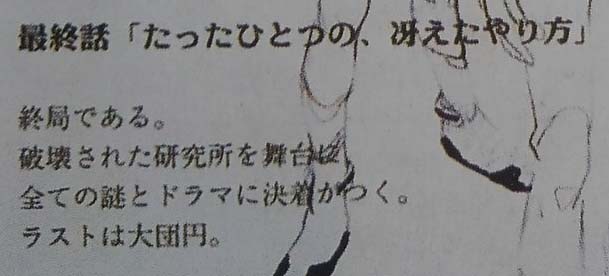 最終話「たったひとつの、冴えたやり方」
終局である。
破壊された研究所を舞台に
全ての謎とドラマに決着がつく。
ラストは大団円。